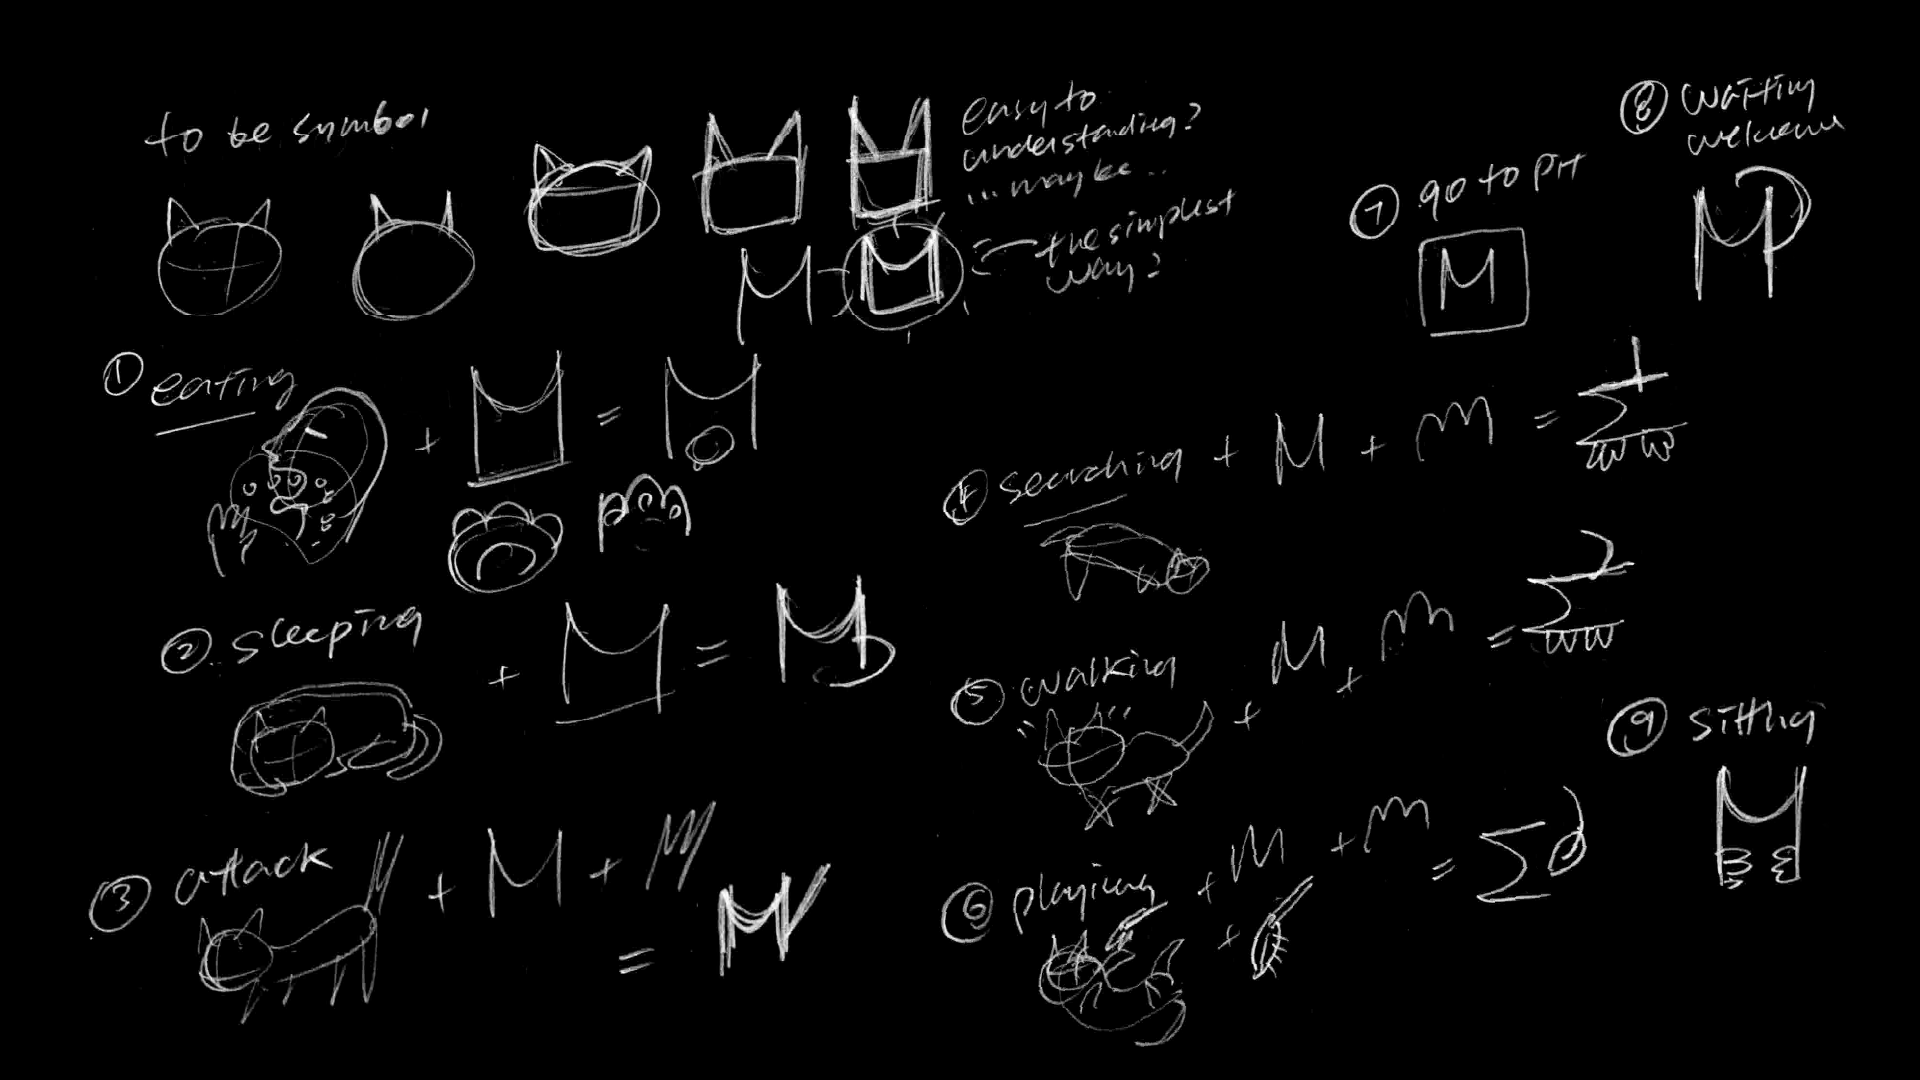 to be symbol
easy to
understanding?
...maybe..
M
the simplest
way?
① eating
+ M = M
② sleeping
+ M =
③ attack
+ M +
=
④ searching + M + m =
⑤ walking
+ M + m =
⑥ playing
+ M + m =
+
⑦ go to PH
M
⑧ waiting
welcome
⑨ sitting